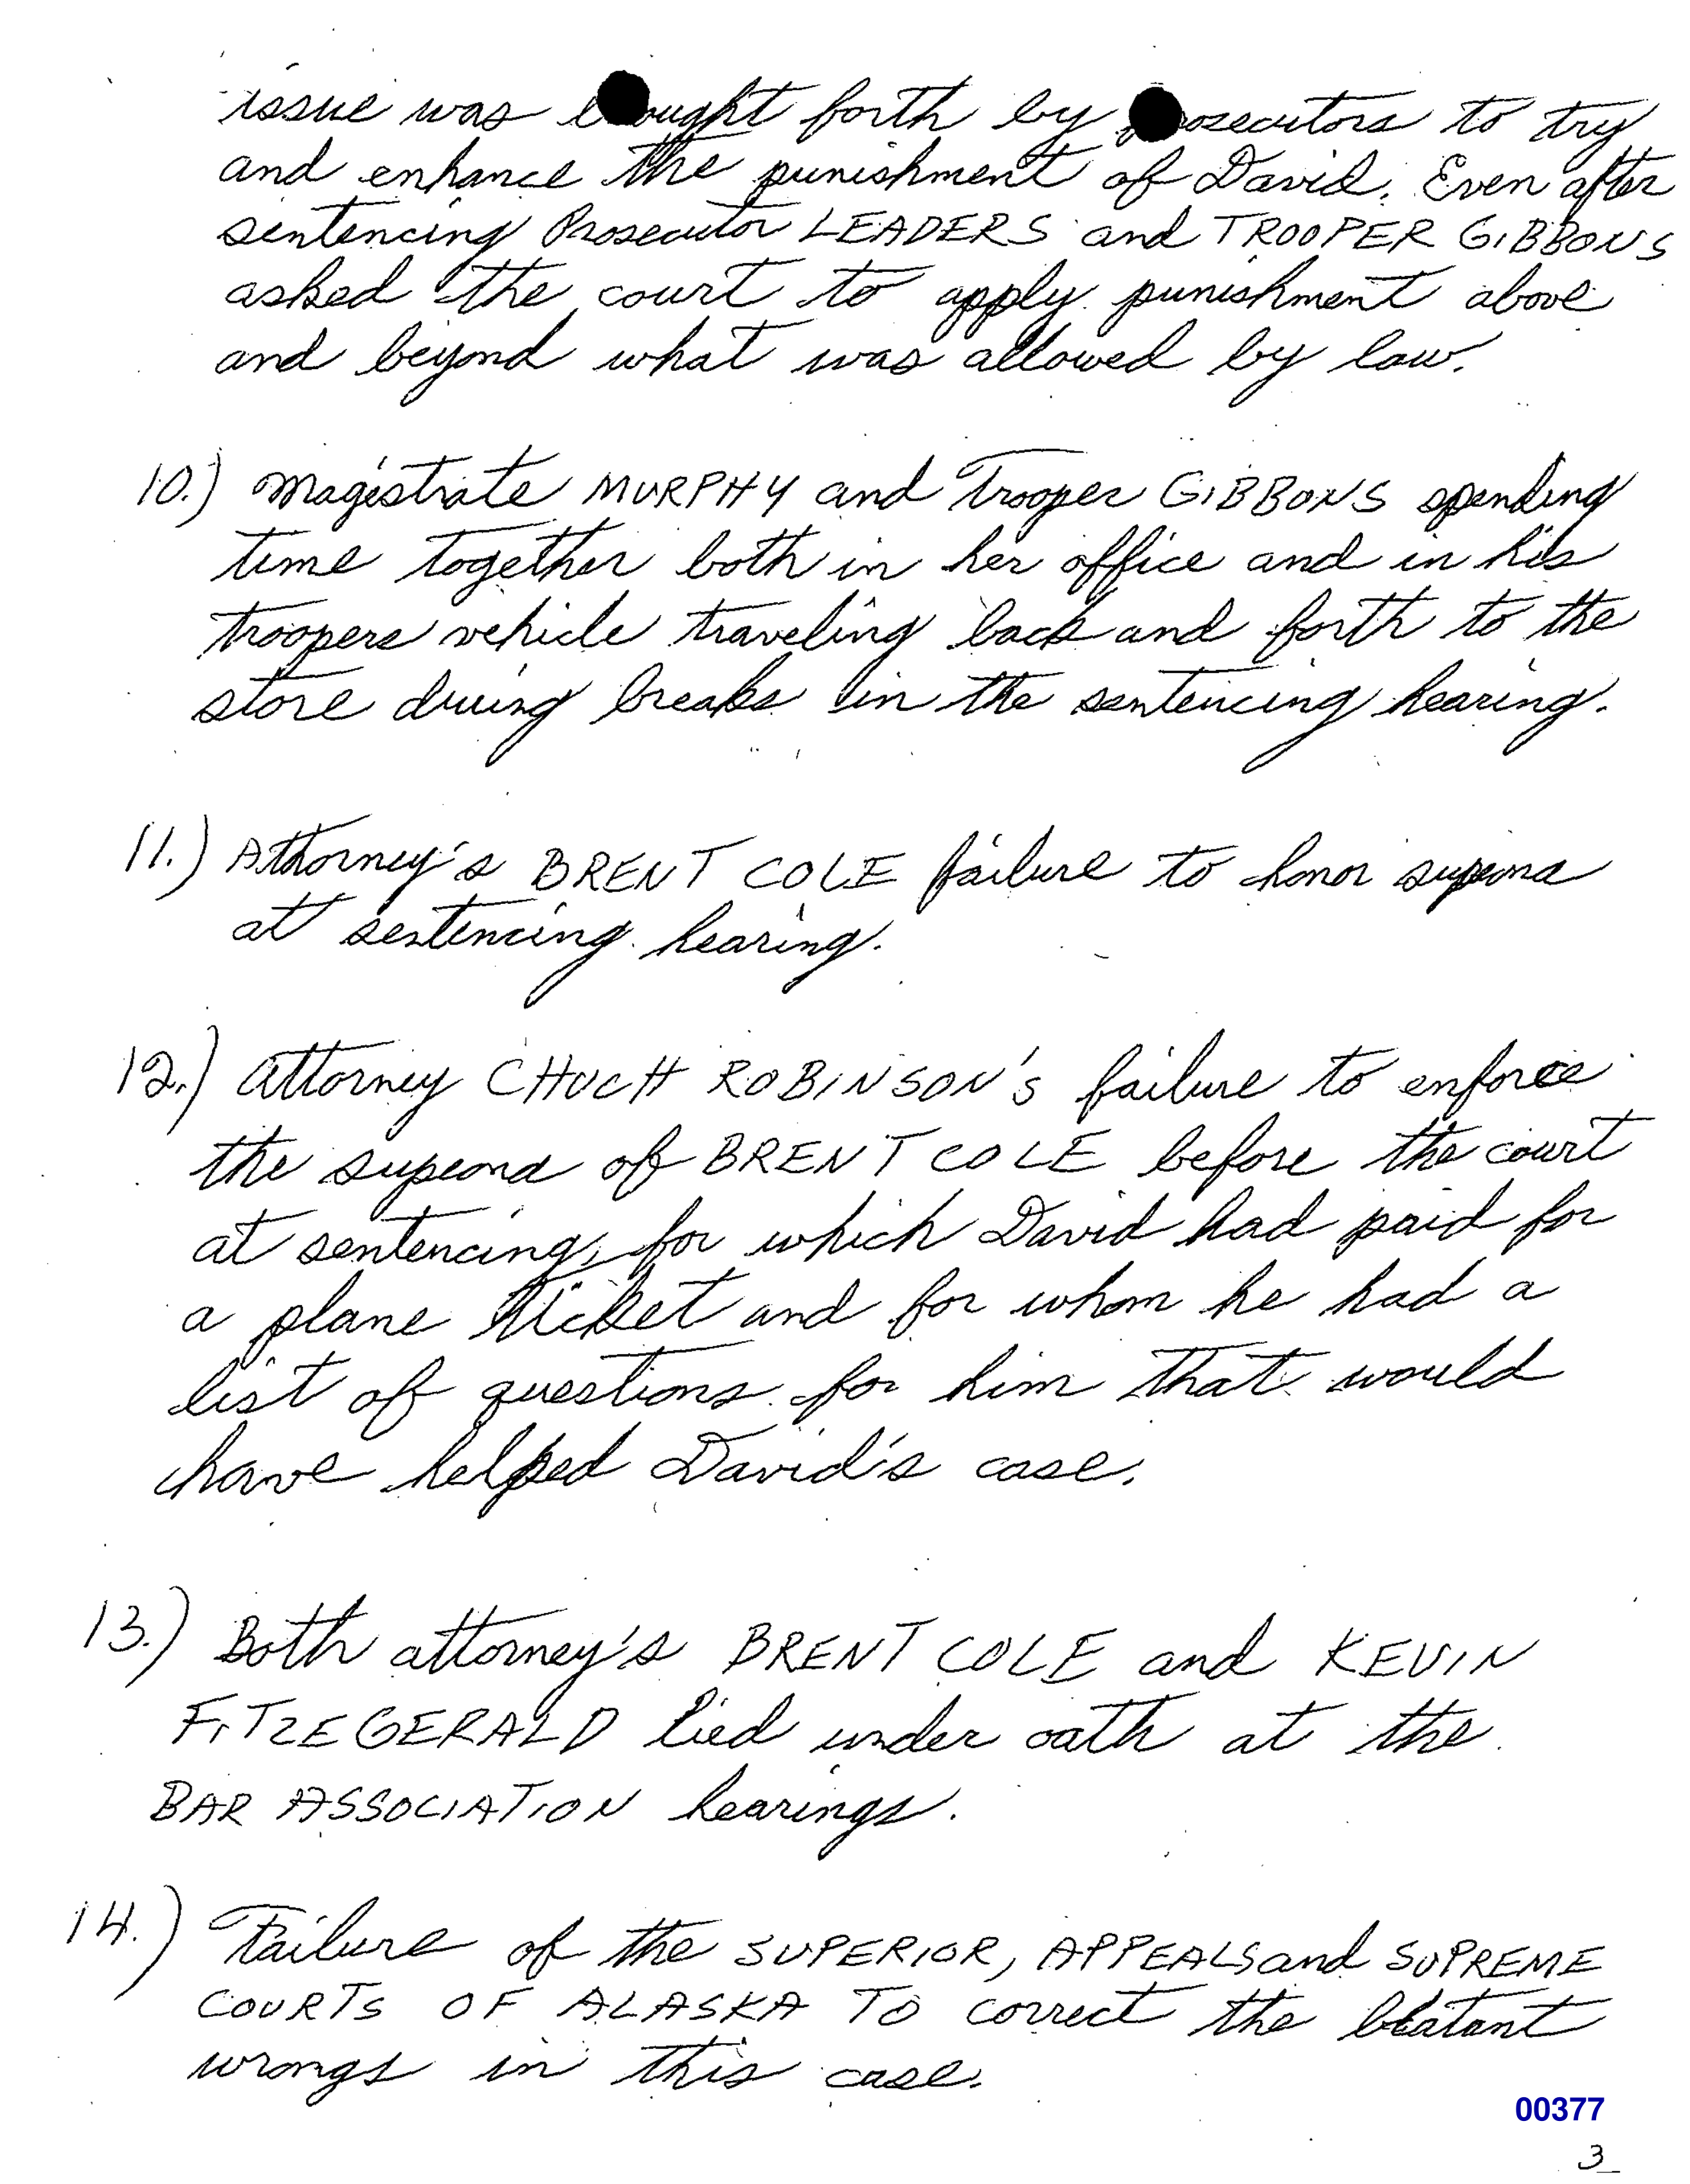 issue was brought forth by prosecutors to try
and enhance the punishment of David. Even after
sentencing Prosecutor LEADERS and TROOPER GIBBONS
asked the court to apply punishment above
and beyond what was allowed by law.
10.) Magistrate MURPHY and Trooper GIBBONS spending
time together both in her office and in his
troopers vehicle traveling back and forth to the
store during breaks in the sentencing hearing.
11.) Attorney's BRENT COLE failure to honor supeona
at sentencing hearing.
12.) Attorney CHUCH ROBINSON's failure to enforce
the supeona of BRENT COLE before the court
at sentencing, for which David had paid for
a plane ticket and for whom he had a
list of questions for him that would
have helped David's case.
13.) Both attorney's BRENT COLE and KEVIN
FITZEGERALD lied under oath at the
BAR ASSOCIATION hearings.
14.) Failure of the SUPERIOR, APPEALS and SUPREME
COURTS OF ALASKA TO correct the blatant
wrongs in this case.
00377
3